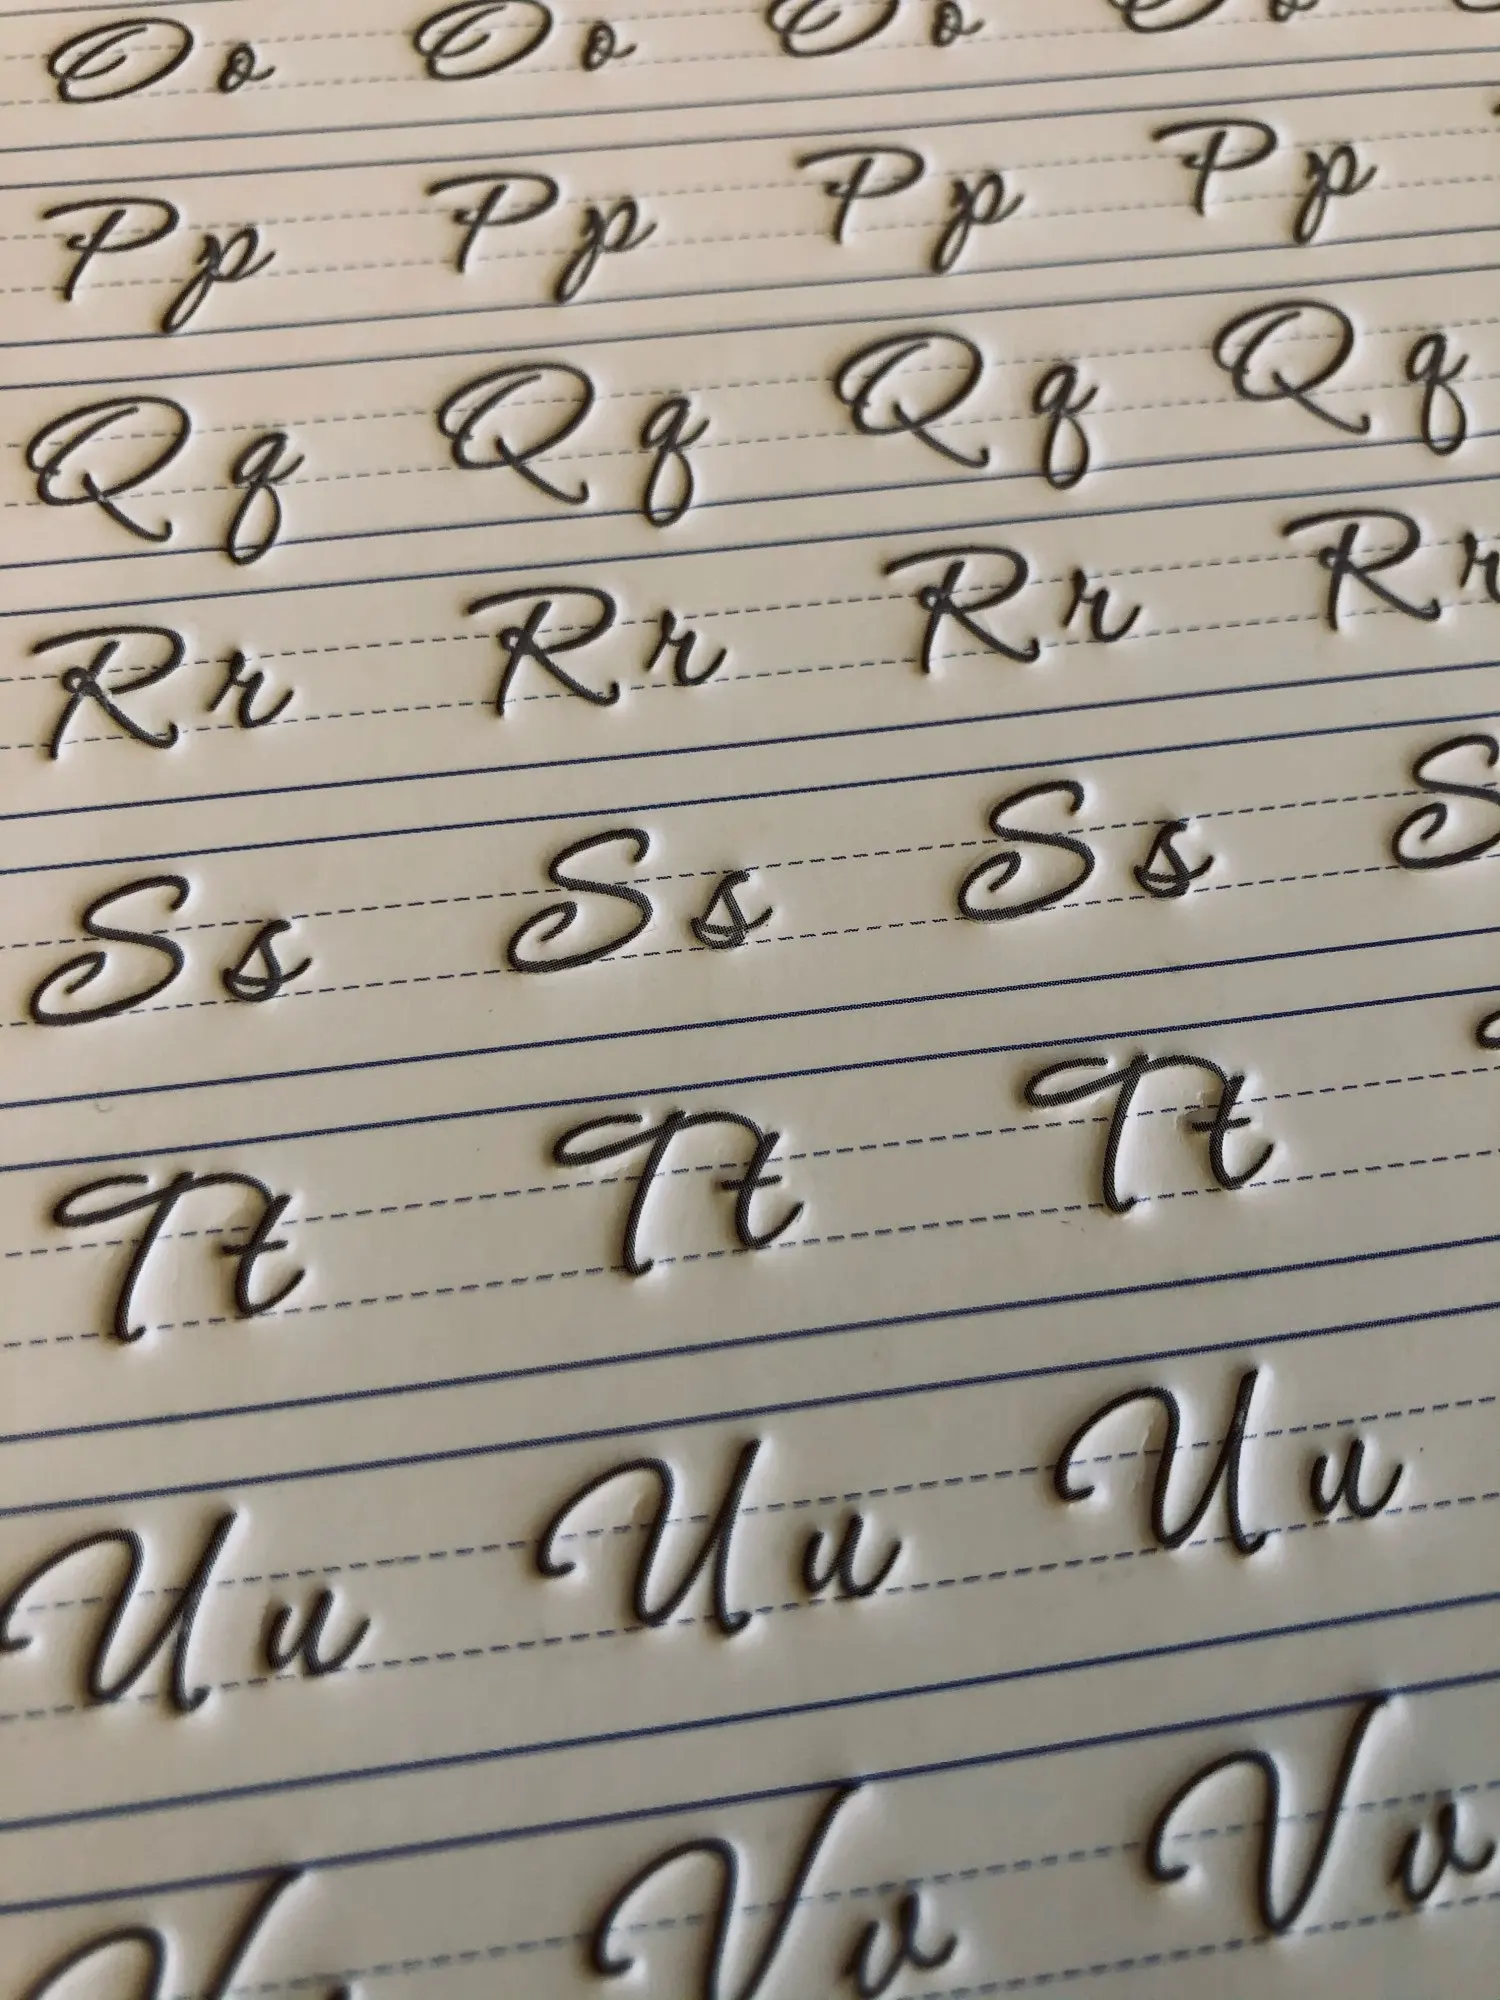 Oo Oo Oo Oo
Pp Pp Pp Pp
Qq Qq Qq Qq
Rr Rr Rr Rr
Ss Ss Ss S
Tt Tt Tt
Uu Uu Uu
V Vv Vv